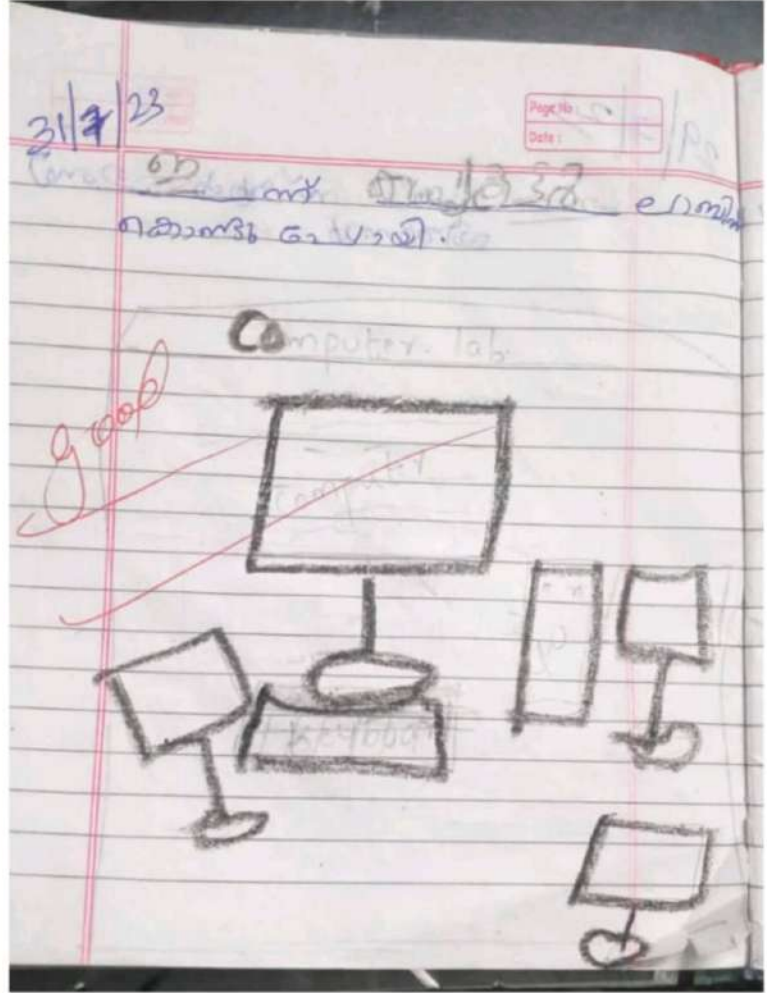 31/7/23
Page No :
Date :
ഇന്ന് ലാബിൽ
കൊണ്ടു പോയി.
Computer lab
good
Computer
Keyboar